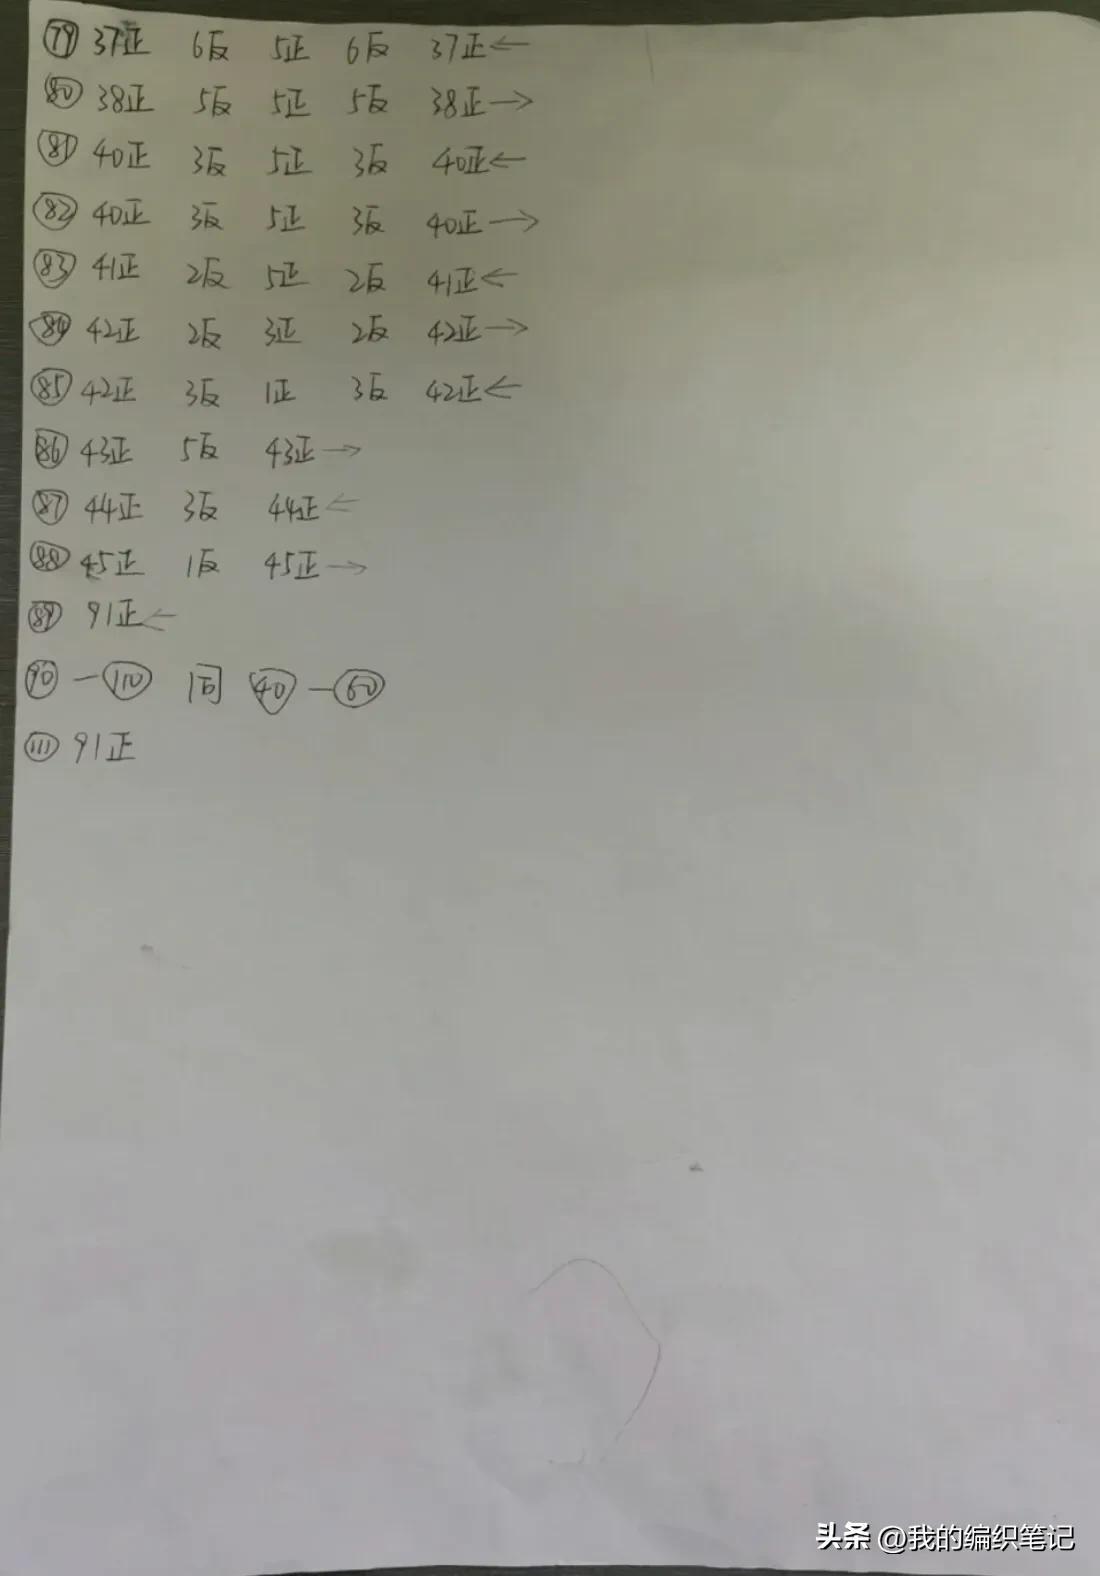 ㊆⑨ 37正 6反 5正 6反 37正←
⑧⓪ 38正 5反 5正 5反 38正→
⑧① 40正 3反 5正 3反 40正←
⑧② 40正 3反 5正 3反 40正→
⑧③ 41正 2反 5正 2反 41正←
⑧④ 42正 2反 3正 2反 42正→
⑧⑤ 42正 3反 1正 3反 42正←
⑧⑥ 43正 5反 43正→
⑧⑦ 44正 3反 44正←
⑧⑧ 45正 1反 45正→
⑧⑨ 91正←
⑨⓪—①①⓪ 同 ④⓪—⑥⓪
①①① 91正
头条 @我的编织笔记